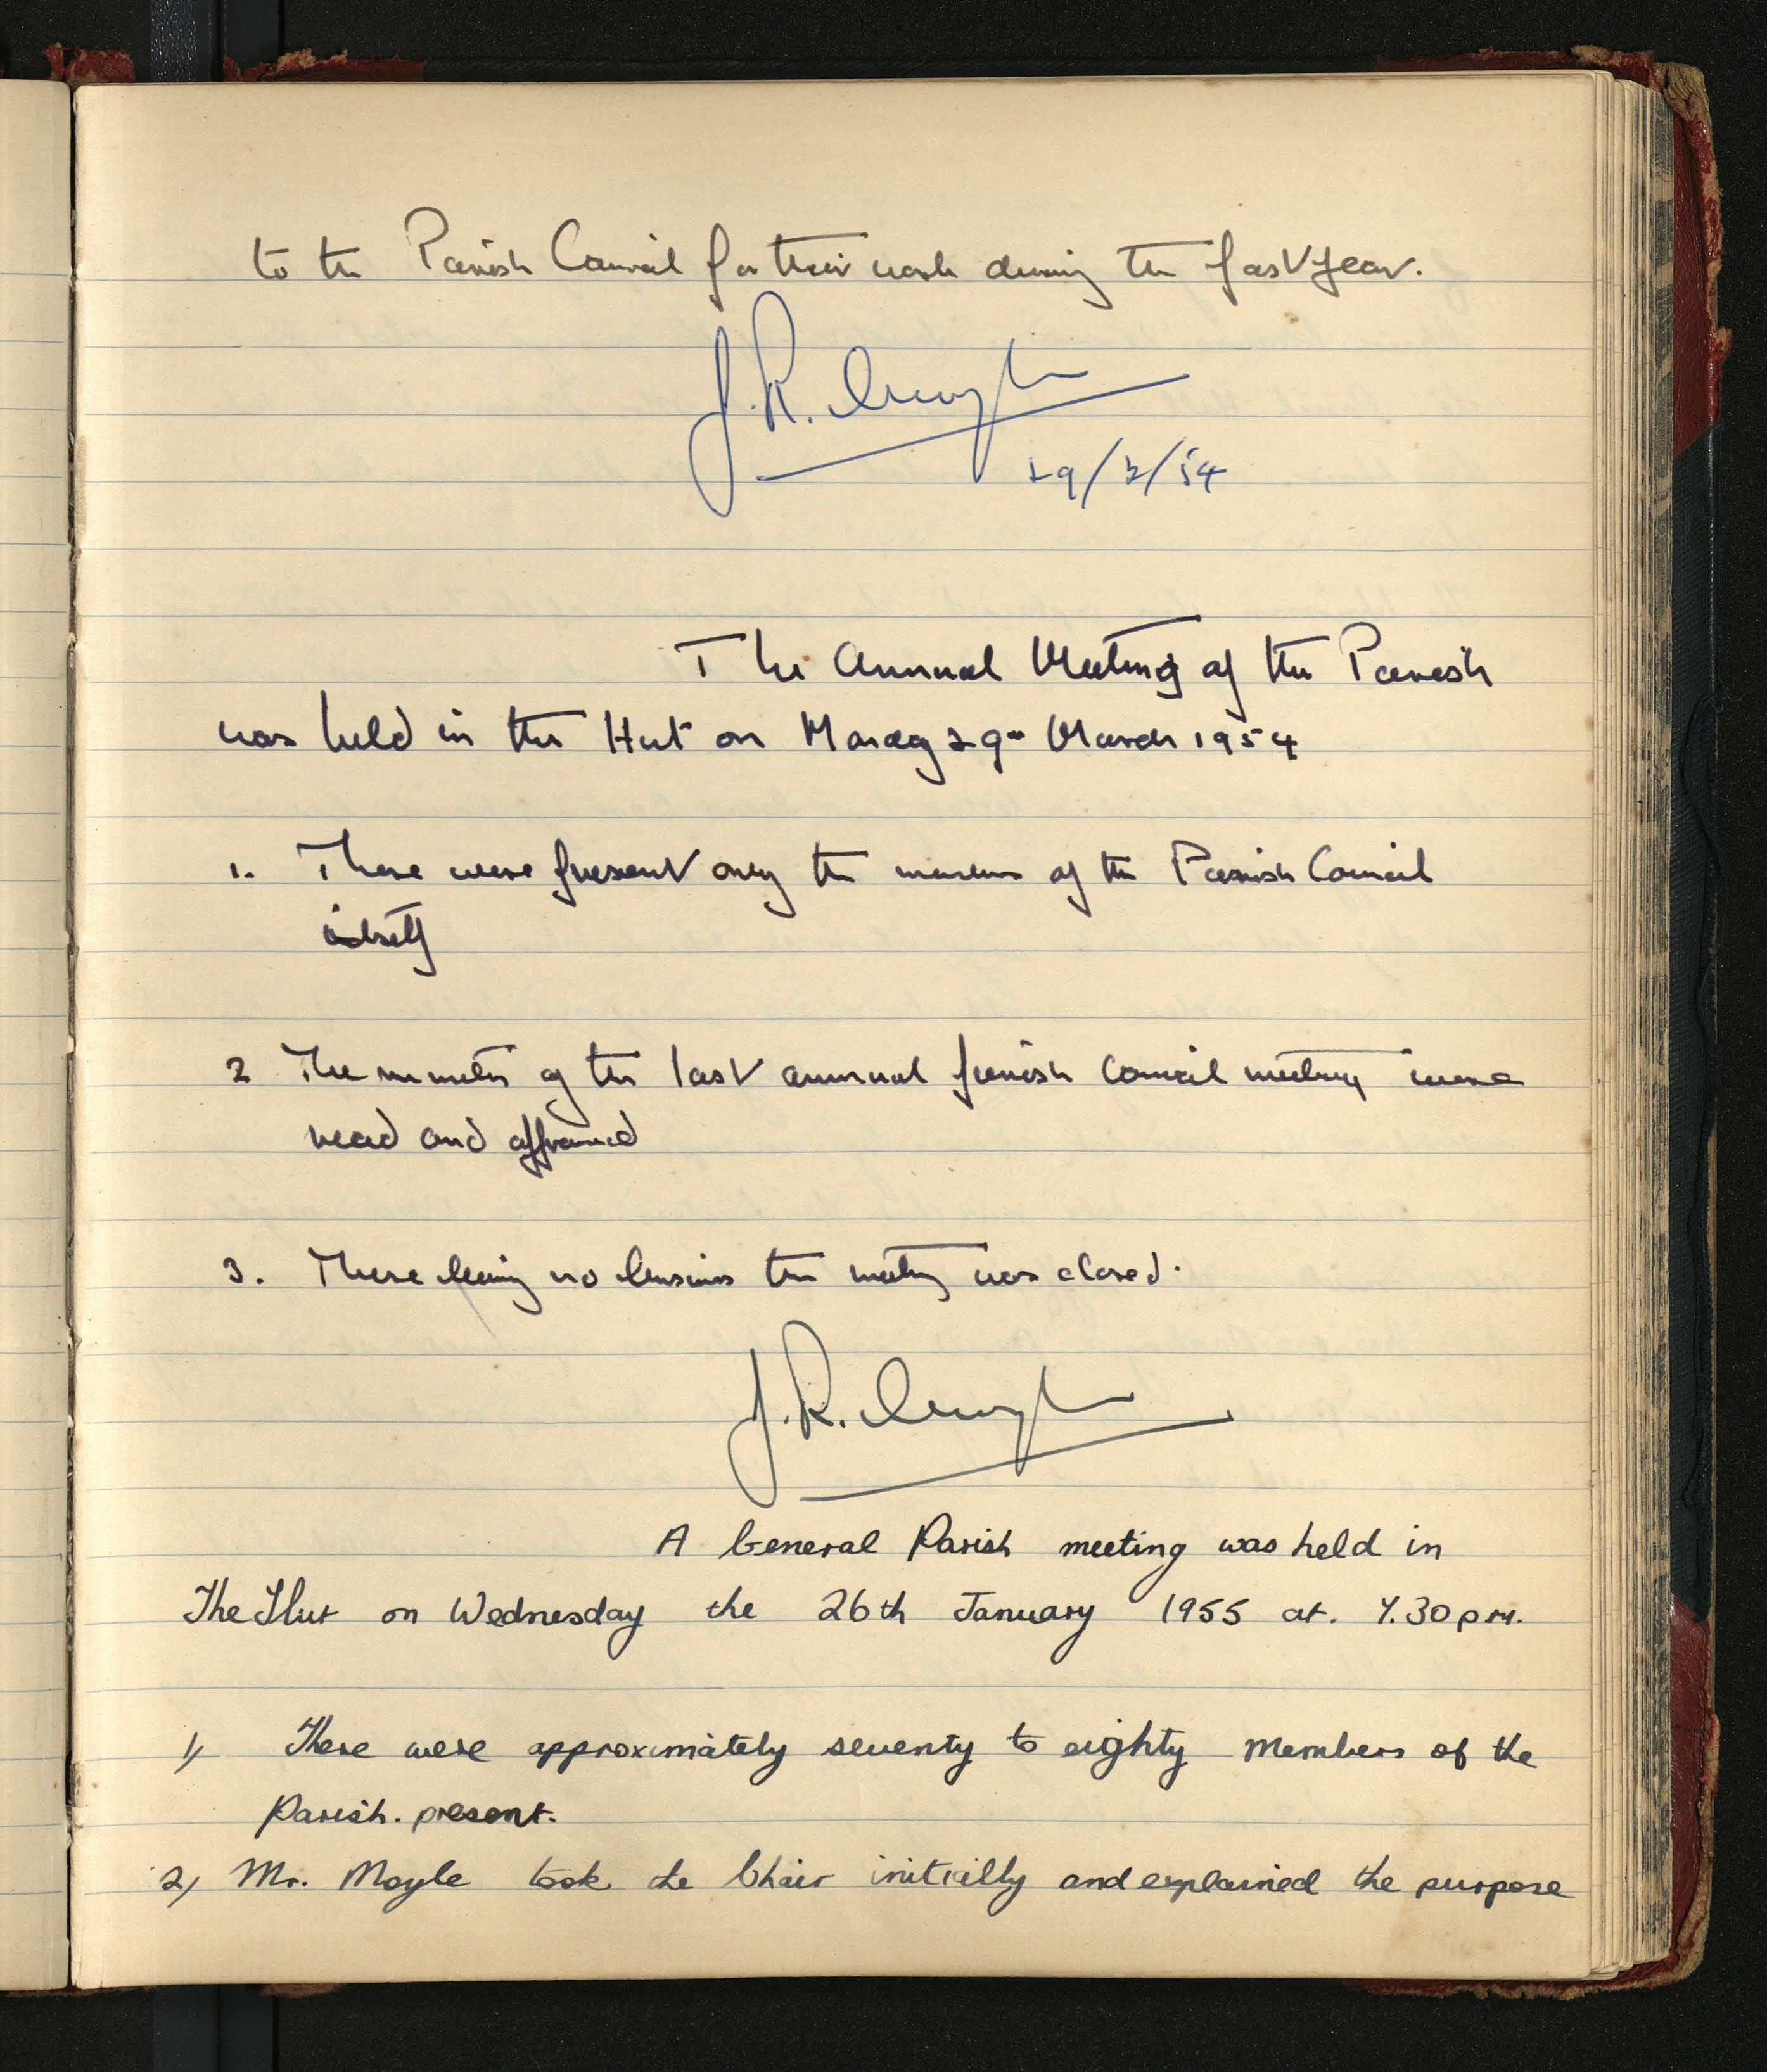 to the Parish Council for their work during the past year.
J.R.
29/3/54
The Annual Meeting of the Parish
was held in the Hut on Monday 29th March 1954
1. There were present only the members of the Parish Council
itself
2 The minutes of the last annual parish Council meeting were
read and approved
3. There being no business the meeting was closed.
J.R.
A General Parish meeting was held in
The Hut on Wednesday the 26th January 1955 at. 7.30 p.m.
1, There were approximately seventy to eighty members of the
Parish. present.
2, Mr. Moyle took the Chair initially and explained the purpose